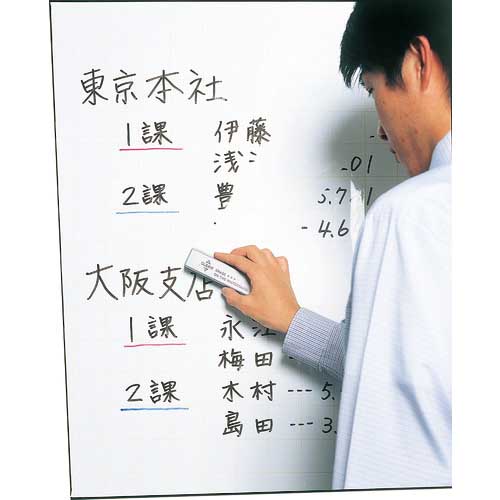 東京本社
1課 伊藤
浅 .01
2課 豊 5.7 1
- 4.6
大阪支店
1課 永江
梅田
2課 木村 --- 5.
島田 --- 3.